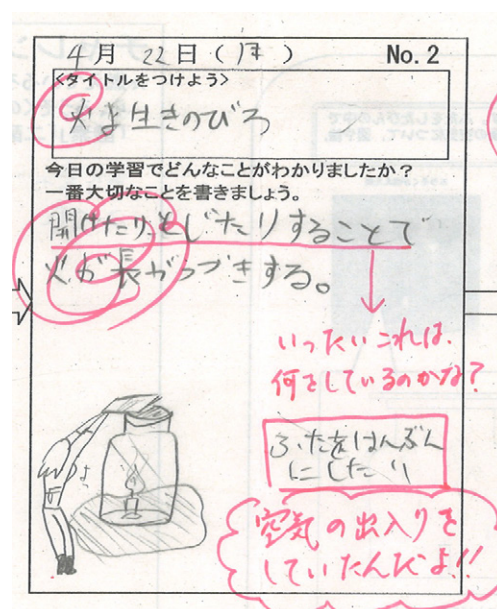 4月 22日（月） No.2
<タイトルをつけよう>
火よ生きのびろ
今日の学習でどんなことがわかりましたか?
一番大切なことを書きましょう。
開けたりとじたりすることで
火が長がつづきする。
いったいこれは、
何をしているのかな?
ふたをはんぶん
にしたり
空気の出入りを
していたんだよ!!